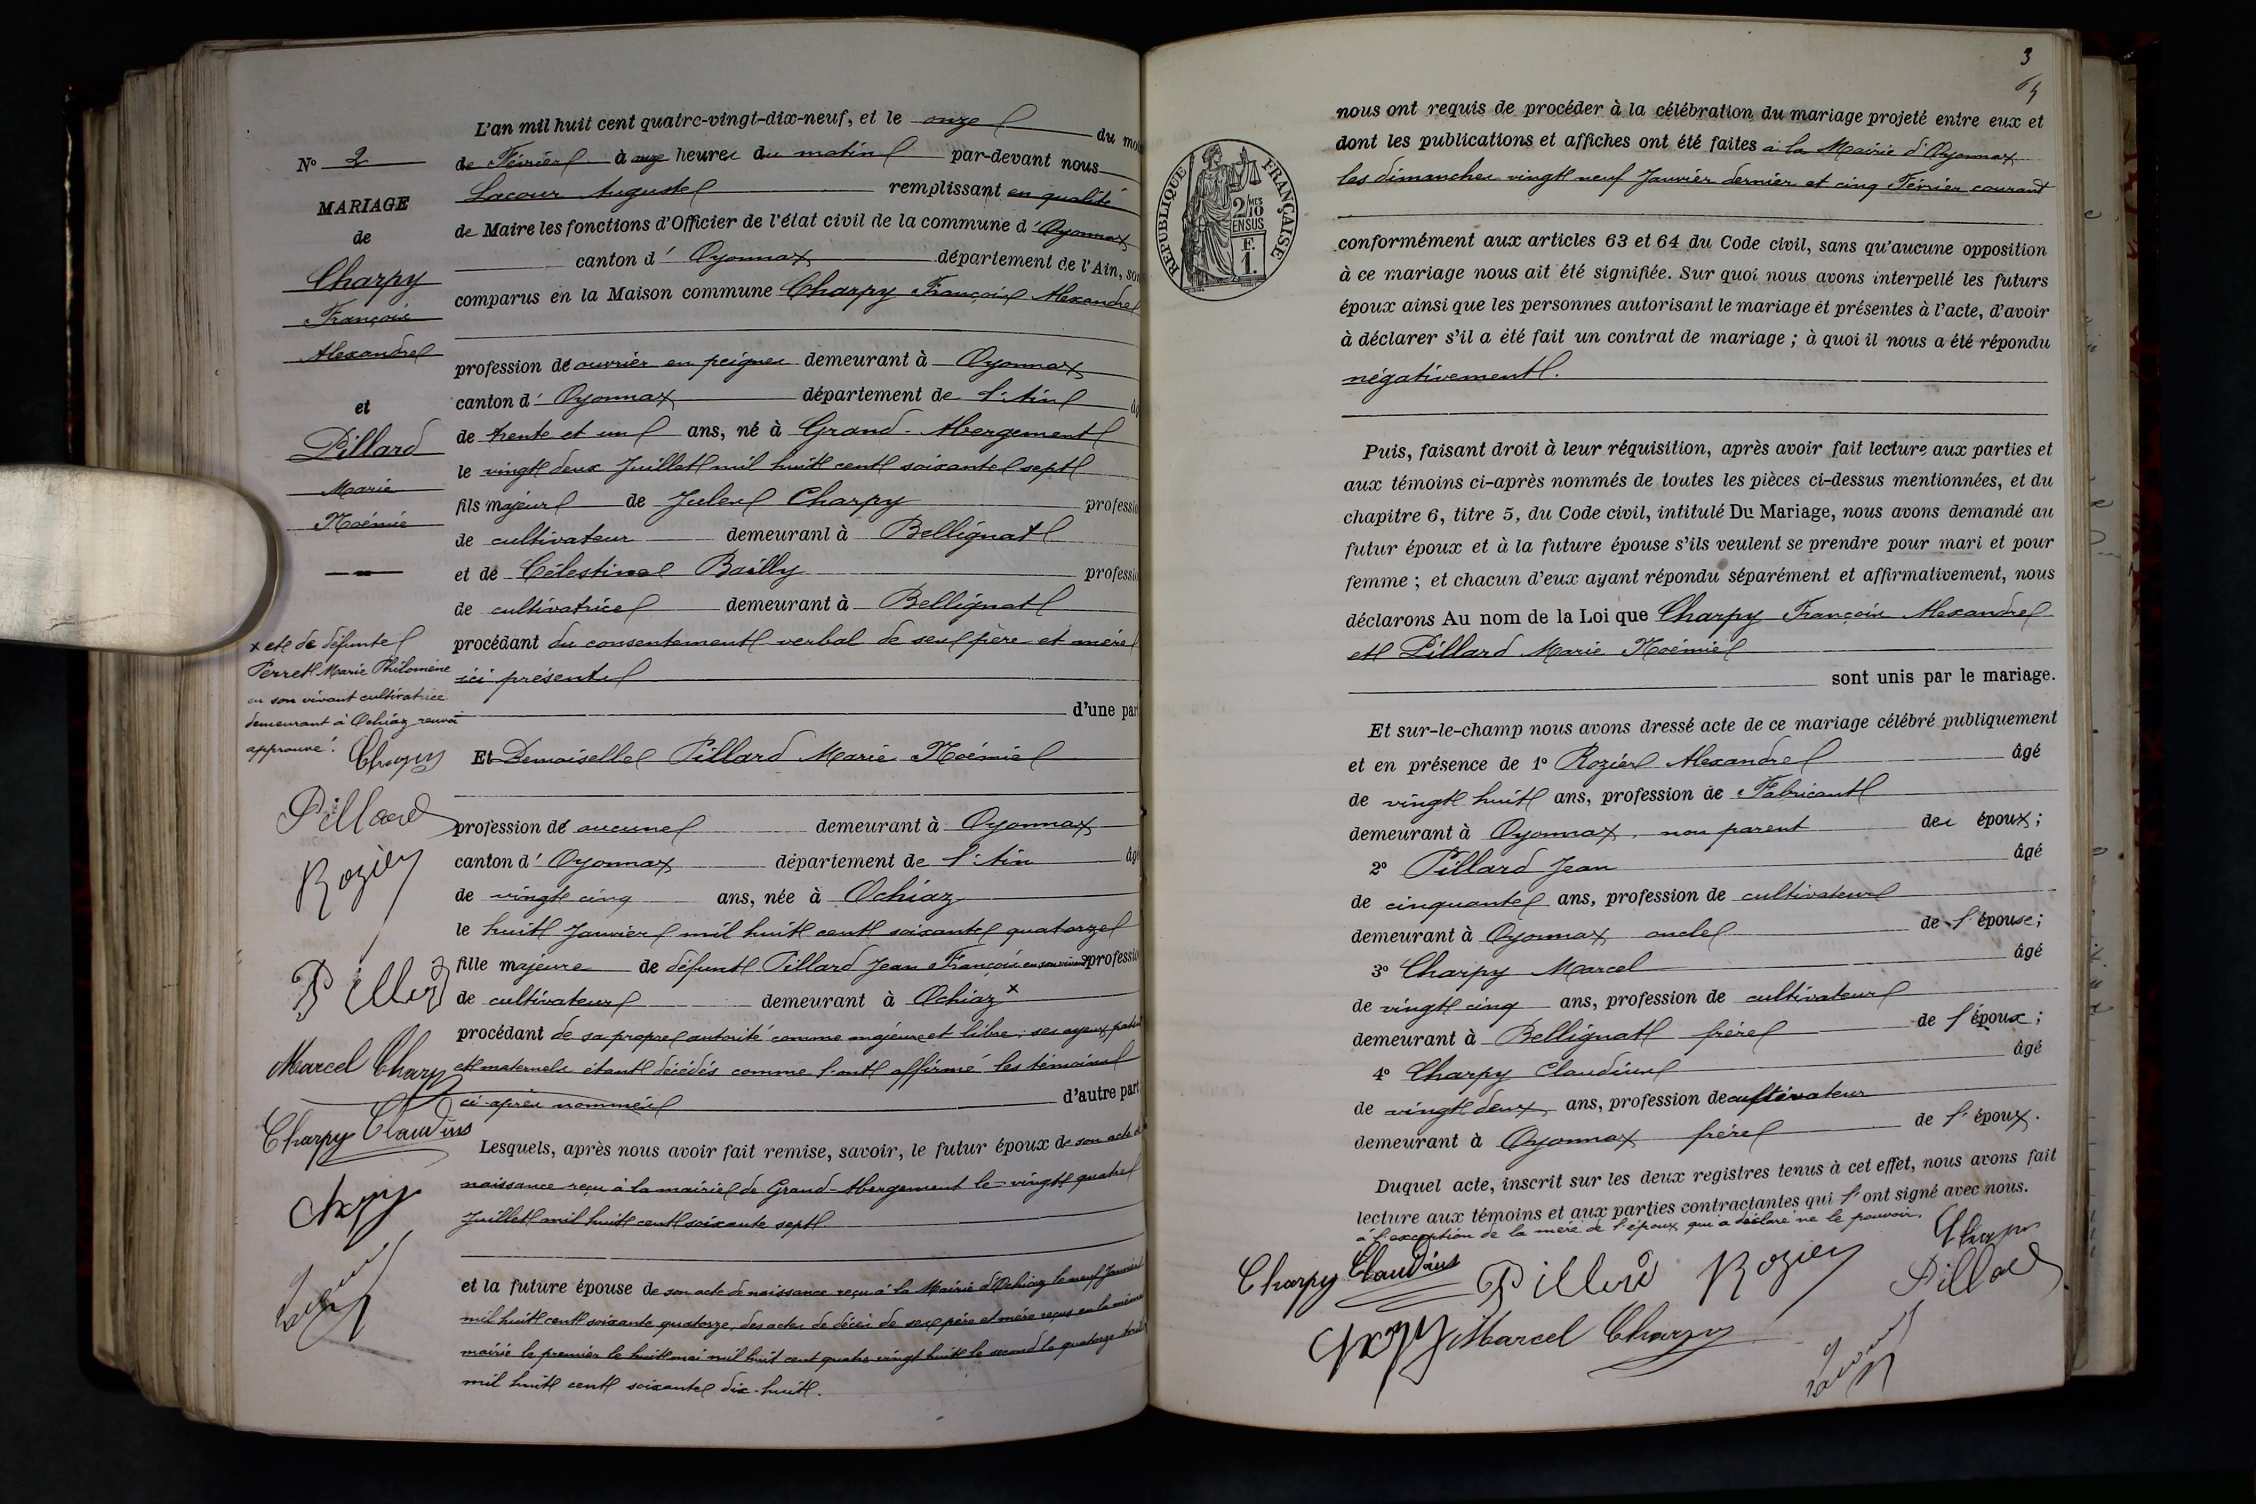 L'an mil huit cent quatre-vingt-dix-neuf, et le onze du mois
N° 2
de Février à onze heures du matin par-devant nous
Lacour Auguste remplissant en qualité
MARIAGE
de
de Maire les fonctions d'Officier de l'état civil de la commune d'Oyonnax
canton d'Oyonnax département de l'Ain, son
Charpy
François
Alexandre
comparus en la Maison commune Charpy François Alexandre
profession de ouvrier en peignes demeurant à Oyonnax
et
canton d'Oyonnax département de l'Ain âg
Pillard
Marie
Noémie
de trente et un ans, né à Grand-Abergement
le vingt deux Juillet mil huit cent soixante sept
fils majeur de Jules Charpy professio
de cultivateur demeurant à Bellignat
et de Célestine Bailly professio
de cultivatrice demeurant à Bellignat
procédant du consentement verbal de ses père et mère
ici présents
d'une par
x et de défunte
Perret Marie Philomène
en son vivant cultivatrice
demeurant à Ochiaz renvoi
approuvé.
Charpy
Pillard
Rozier
Pillard
Marcel Charpy
Charpy Claudius
Charpy
Lacour
Et Demoiselle Pillard Marie Noémie
profession de aucune demeurant à Oyonnax
canton d'Oyonnax département de l'Ain âgé
de vingt cinq ans, née à Ochiaz
le huit Janvier mil huit cent soixante quatorze
fille majeure de défunt Pillard Jean François en son vivant professio
de cultivateur demeurant à Ochiaz x
procédant de sa propre autorité comme majeure et libre, ses ayeux patern
et maternels étant décédés comme l'ont affirmé les témoins
ci-après nommés d'autre part
Lesquels, après nous avoir fait remise, savoir, le futur époux de son acte de
naissance reçu à la mairie de Grand-Abergement le vingt quatre
Juillet mil huit cent soixante sept
et la future épouse de son acte de naissance reçu à la Mairie d'Ochiaz le neuf Janvier
mil huit cent soixante quatorze, des actes de décès de ses père et mère reçus en la même
mairie le premier le huit mai mil huit cent quatre vingt huit le second le quatorze Avril
mil huit cent soixante dix-huit.
3
RÉPUBLIQUE FRANÇAISE
2/10 MES
EN SUS
F.
1.
nous ont requis de procéder à la célébration du mariage projeté entre eux et
dont les publications et affiches ont été faites à la Mairie d'Oyonnax
les dimanches vingt neuf Janvier dernier et cinq Février courant
conformément aux articles 63 et 64 du Code civil, sans qu'aucune opposition
à ce mariage nous ait été signifiée. Sur quoi nous avons interpellé les futurs
époux ainsi que les personnes autorisant le mariage et présentes à l'acte, d'avoir
à déclarer s'il a été fait un contrat de mariage ; à quoi il nous a été répondu
négativement.
Puis, faisant droit à leur réquisition, après avoir fait lecture aux parties et
aux témoins ci-après nommés de toutes les pièces ci-dessus mentionnées, et du
chapitre 6, titre 5, du Code civil, intitulé Du Mariage, nous avons demandé au
futur époux et à la future épouse s'ils veulent se prendre pour mari et pour
femme ; et chacun d'eux ayant répondu séparément et affirmativement, nous
déclarons Au nom de la Loi que Charpy François Alexandre
et Pillard Marie Noémie
sont unis par le mariage.
Et sur-le-champ nous avons dressé acte de ce mariage célébré publiquement
et en présence de 1° Rozier Alexandre âgé
de vingt huit ans, profession de Fabricant
demeurant à Oyonnax, non parent des époux ;
2° Pillard Jean âgé
de cinquante ans, profession de cultivateur
demeurant à Oyonnax oncle de l'épouse ;
3° Charpy Marcel âgé
de vingt cinq ans, profession de cultivateur
demeurant à Bellignat frère de l'époux ;
4° Charpy Claudius âgé
de vingt deux ans, profession de cultivateur
demeurant à Oyonnax frère de l'époux.
Duquel acte, inscrit sur les deux registres tenus à cet effet, nous avons fait
lecture aux témoins et aux parties contractantes qui l'ont signé avec nous.
à l'exception de la mère de l'époux qui a déclaré ne le pouvoir.
Charpy Claudius Pillard Rozier Charpy
Pillard
Charpy Marcel Charpy
Lacour